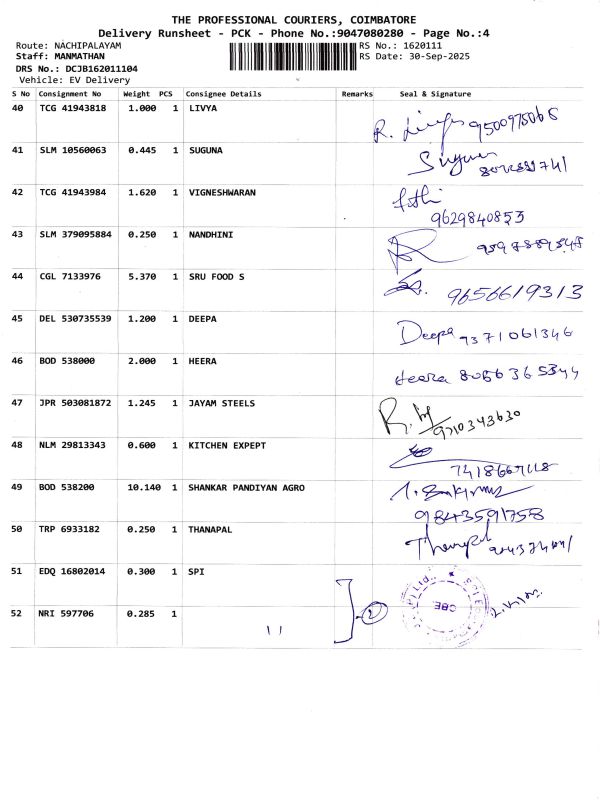 THE PROFESSIONAL COURIERS, COIMBATORE
Delivery Runsheet - PCK - Phone No.:9047080280 - Page No.:4
Route: NACHIPALAYAM
Staff: MANMATHAN
DRS No.: DCJB162011104
Vehicle: EV Delivery
RS No.: 1620111
RS Date: 30-Sep-2025
S No Consignment No Weight PCS Consignee Details Remarks Seal & Signature
40 TCG 41943818 1.000 1 LIVYA R.
41 SLM 10560063 0.445 1 SUGUNA
42 TCG 41943984 1.620 1 VIGNESHWARAN 9629840853
43 SLM 379095884 0.250 1 NANDHINI
44 CGL 7133976 5.370 1 SRU FOOD S 9656619313
45 DEL 530735539 1.200 1 DEEPA Deepa 9371061346
46 BOD 538000 2.000 1 HEERA Heera 8056365344
47 JPR 503081872 1.245 1 JAYAM STEELS 9710343630
48 NLM 29813343 0.600 1 KITCHEN EXPEPT
49 BOD 538200 10.140 1 SHANKAR PANDIYAN AGRO 9843591758
50 TRP 6933182 0.250 1 THANAPAL
51 EDQ 16802014 0.300 1 SPI
52 NRI 597706 0.285 1 11 2 CBE